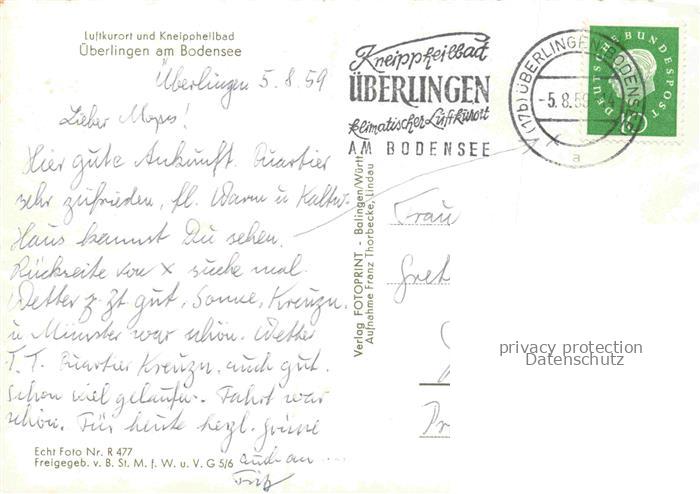 Luftkurort und Kneippheilbad
Überlingen am Bodensee
Überlingen 5.8.59
Lieber !
Hier gute Ankunft. Quartier
sehr zufrieden, fl. Warm u Kaltw.
Haus kannst Du sehen.
Rückseite von x suche mal.
Wetter z. Zt gut, Sonne, Kreuzn.
u Münster war schön. Wetter
T.T. Quartier Kreuzn. auch gut.
Schon viel gelaufen. Fahrt war
schön. Für heute herzl. Grüße
auch an ....
Fritz
Echt Foto Nr. R 477
Freigegeb. v. B. St. M. f. W. u. V. G 5/6
Verlag FOTOPRINT - Balingen/Württ
Aufnahme Franz Thorbecke, Lindau
Kneippheilbad
ÜBERLINGEN
klimatischer Luftkurort
AM BODENSEE
(17b) ÜBERLINGEN BODENS
-5.8.59
a
DEUTSCHE BUNDESPOST
10
x
Frau
Gret
privacy protection
Datenschutz